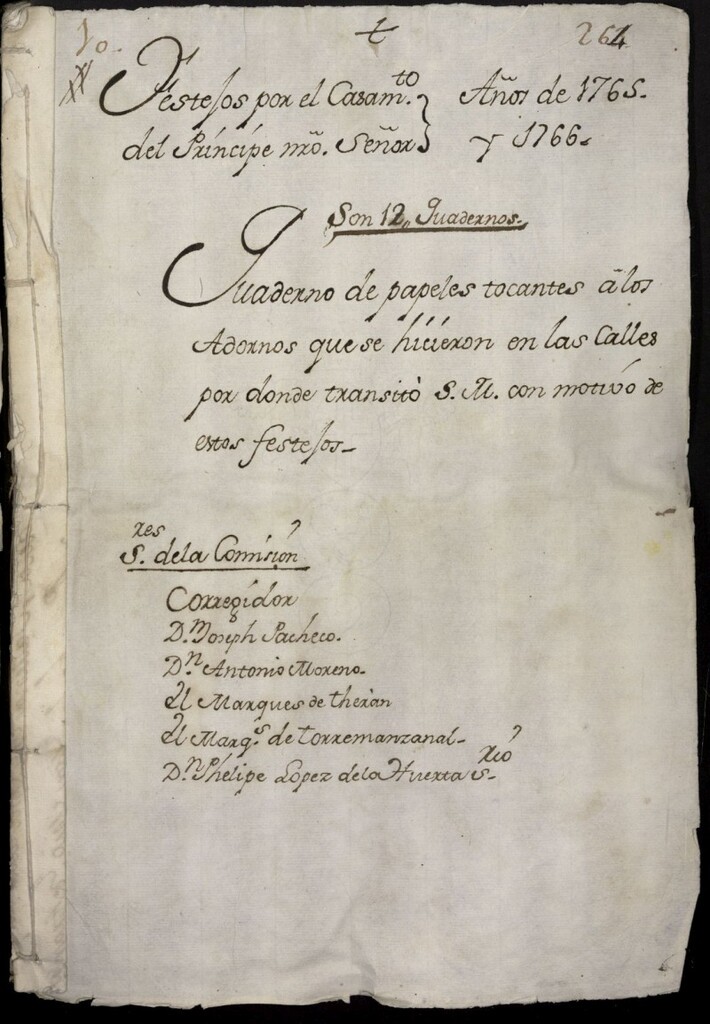 1o. + 264
Festejos por el Casam.to } Años de 1765.
del Principe nrõ. Señor } y 1766.
Son 12,, Quadernos.
Quaderno de papeles tocantes â los
Adornos que se hicieron en las Calles
por donde transitò S. M. con motivo de
estos festejos-
S.res de la Comision
Corregidor
D.n Joseph Pacheco.
D.n Antonio Moreno.
El Marques de theran
El Marq.s de torremanzanal-
D.n Phelipe Lopez de la Huerta S.rio